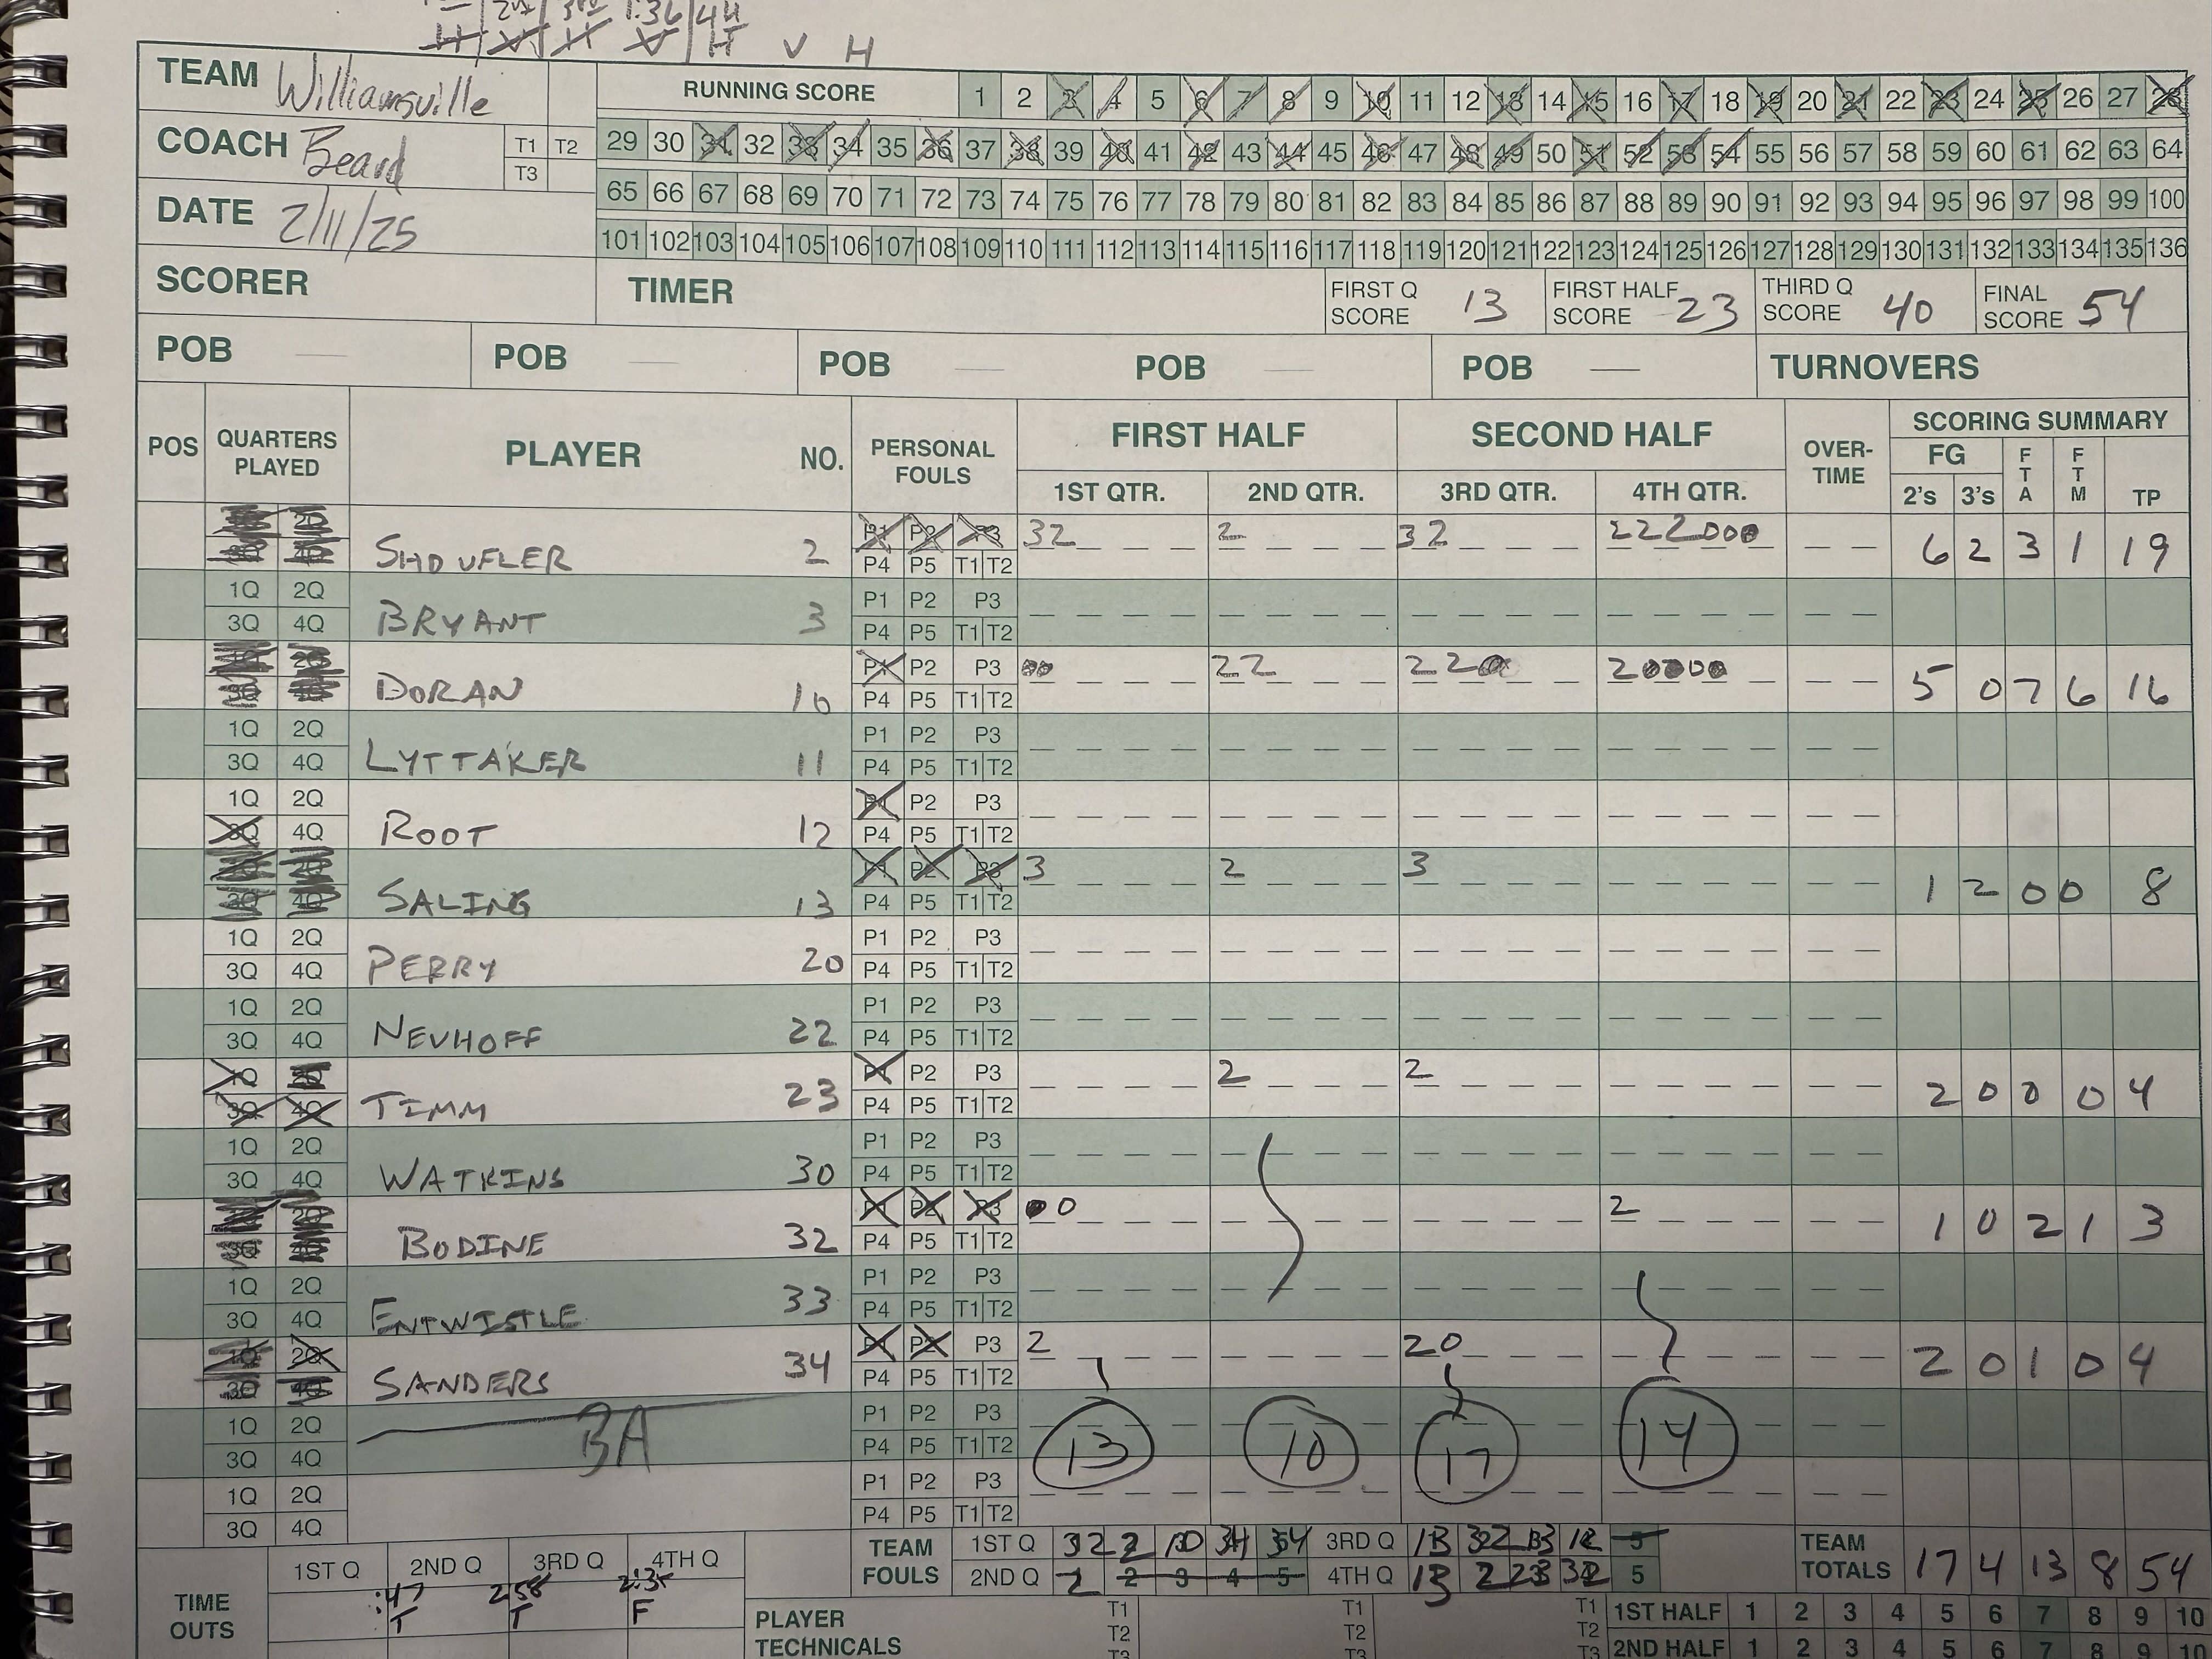 2nd 3rd 1:36 4th
H V H V H V H
TEAM Williamsville
RUNNING SCORE 1 2 3 4 5 6 7 8 9 10 11 12 13 14 15 16 17 18 19 20 21 22 23 24 25 26 27 28
COACH Beard T1 T2 T3
29 30 31 32 33 34 35 36 37 38 39 40 41 42 43 44 45 46 47 48 49 50 51 52 53 54 55 56 57 58 59 60 61 62 63 64
DATE 2/11/25
65 66 67 68 69 70 71 72 73 74 75 76 77 78 79 80 81 82 83 84 85 86 87 88 89 90 91 92 93 94 95 96 97 98 99 100
101 102 103 104 105 106 107 108 109 110 111 112 113 114 115 116 117 118 119 120 121 122 123 124 125 126 127 128 129 130 131 132 133 134 135 136
SCORER TIMER FIRST Q SCORE 13 FIRST HALF SCORE 23 THIRD Q SCORE 40 FINAL SCORE 54
POB POB POB POB POB TURNOVERS
POS QUARTERS PLAYED PLAYER NO. PERSONAL FOULS FIRST HALF SECOND HALF OVER-TIME SCORING SUMMARY
1ST QTR. 2ND QTR. 3RD QTR. 4TH QTR. FG 2's 3's FTA FTM TP
1Q 2Q P1 P2 P3 32 2 32 222000
3Q 4Q SHOUFLER 2 P4 P5 T1 T2 6 2 3 1 19
1Q 2Q P1 P2 P3
3Q 4Q BRYANT 3 P4 P5 T1 T2
1Q 2Q P1 P2 P3 00 22 220 20000
3Q 4Q DORAN 10 P4 P5 T1 T2 5 0 7 6 16
1Q 2Q P1 P2 P3
3Q 4Q LYTTAKER 11 P4 P5 T1 T2
1Q 2Q P1 P2 P3
3Q 4Q ROOT 12 P4 P5 T1 T2
1Q 2Q P1 P2 P3 3 2 3
3Q 4Q SALING 13 P4 P5 T1 T2 1 2 0 0 8
1Q 2Q P1 P2 P3
3Q 4Q PERRY 20 P4 P5 T1 T2
1Q 2Q P1 P2 P3
3Q 4Q NEUHOFF 22 P4 P5 T1 T2
1Q 2Q P1 P2 P3 2 2
3Q 4Q TIMM 23 P4 P5 T1 T2 2 0 0 0 4
1Q 2Q P1 P2 P3
3Q 4Q WATKINS 30 P4 P5 T1 T2
1Q 2Q P1 P2 P3 00 2
3Q 4Q BODINE 32 P4 P5 T1 T2 1 0 2 1 3
1Q 2Q P1 P2 P3
3Q 4Q ENTWISTLE 33 P4 P5 T1 T2
1Q 2Q P1 P2 P3 2 20
3Q 4Q SANDERS 34 P4 P5 T1 T2 2 0 1 0 4
1Q 2Q P1 P2 P3
3Q 4Q BA P4 P5 T1 T2 13 10 17 14
1Q 2Q P1 P2 P3
3Q 4Q P4 P5 T1 T2
TEAM FOULS 1ST Q 32 2 10 34 34 3RD Q 13 32 13 12 5 TEAM TOTALS 17 4 13 8 54
2ND Q 2 2 3 4 5 4TH Q 13 2 23 32 5
TIME OUTS 1ST Q 2ND Q 3RD Q 4TH Q
:47 2:58 2:35
T T F
PLAYER TECHNICALS T1 T2 T3 T1 T2 T3 T1 T2 T3
1ST HALF 1 2 3 4 5 6 7 8 9 10
2ND HALF 1 2 3 4 5 6 7 8 9 10